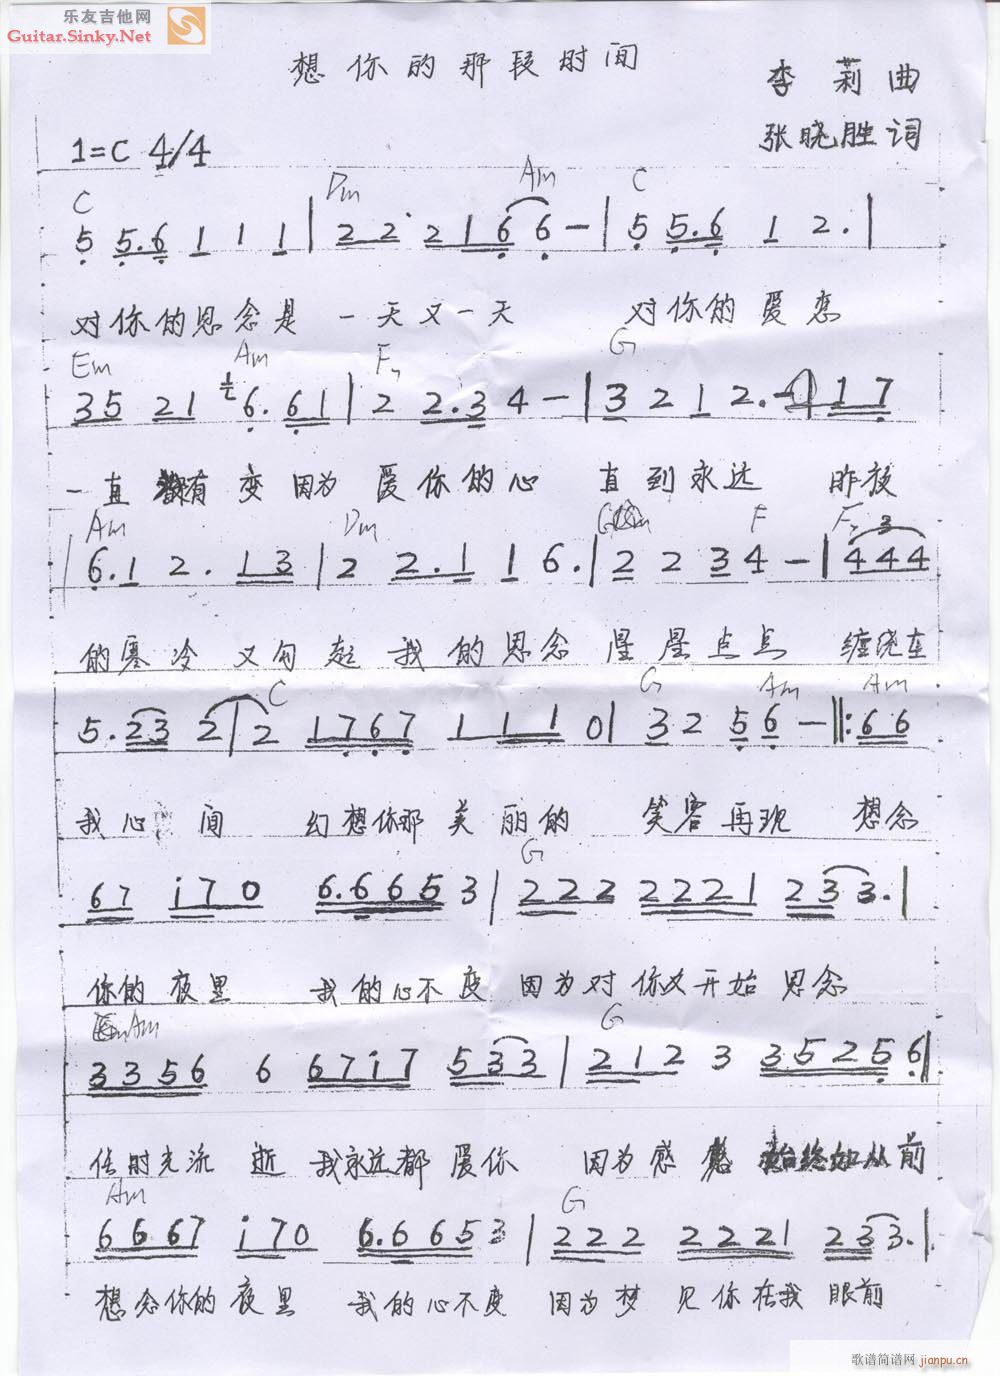 乐友吉他网
Guitar.Sinky.Net
想你的那段时间
李莉曲
张晓胜词
1=C 4/4
C Dm Am C
5 5.6 1 1 1 | 2 2 2 1 6 6 - | 5 5.6 1 2. |
对你的思念是 一天又一天 对你的爱恋
Em Am F G
3 5 2 1 6. 6 1 | 2 2.3 4 - | 3 2 1 2. - | 1 7
一直没有变 因为爱你的心 直到永远 昨夜
Am Dm G F F 3
| 6. 1 2. 1 3 | 2 2.1 1 6. | 2 2 3 4 - | 4 4 4
的寒冷 又勾起 我的思念 星星点点 缠绕在
C G Am Am
5. 2 3 2 | 2 1 7 6 7 1 1 1 0 | 3 2 5 6 - ‖: 6 6
我心间 幻想你那美丽的 笑容再现 想念
G
6 7 i 7 0 6. 6 6 5 3 | 2 2 2 2 2 2 1 2 3 3. |
你的夜里 我的心不变 因为对你又开始思念
Am G
3 3 5 6 6 6 7 i 7 5 3 3 | 2 1 2 3 3 5 2 5 6 ‖
任时光流逝 我永远都爱你 因为感 始终如从前
Am G
6 6 6 7 i 7 0 6. 6 6 5 3 | 2 2 2 2 2 2 1 2 3 3. |
想念你的夜里 我的心不变 因为梦见你在我眼前
歌谱简谱网 jianpu.cn